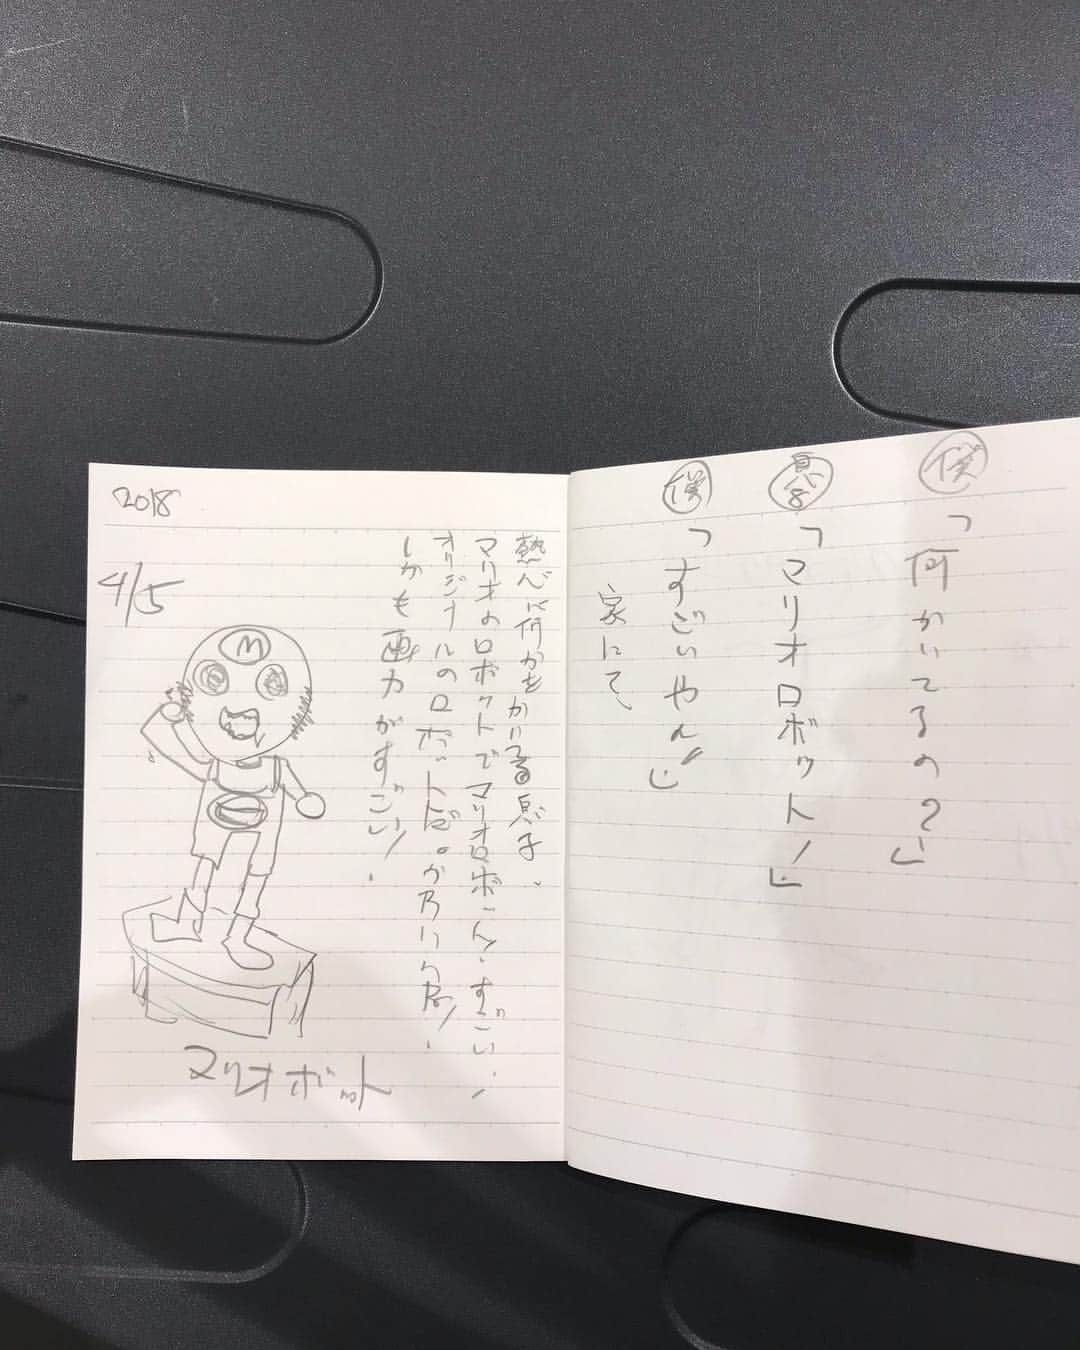 僕「何かいてるの?」
息子「マリオロボット!」
僕「すごいやん!!」
家にて
2018
4/5
熱心に何かをかいてる息子、
マリオのロボットでマリオロボット!すごい!
オリジナルのロボットだ。かなりうれ!
しかも画力がすごい!
M
マリオボット